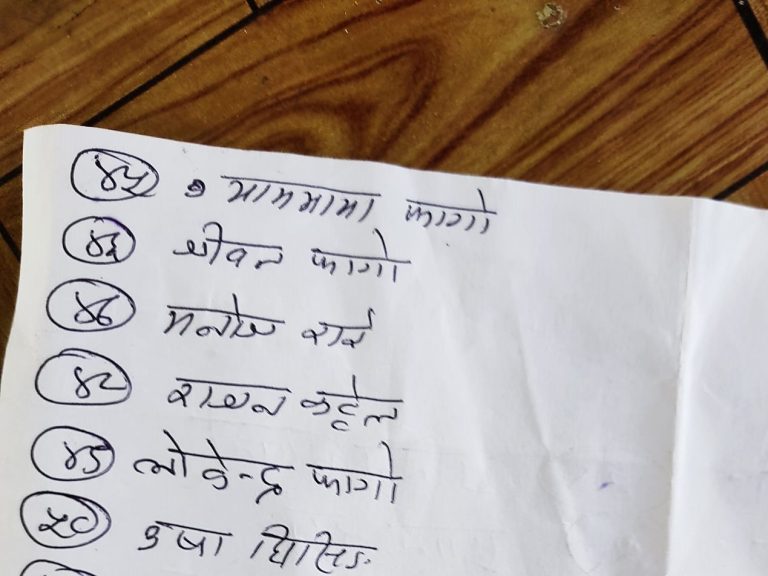 ४५ फागो
४६ जीवन फागो
४७ मनोज राई
४८ राजन कट्टेल
४९ लोकेन्द्र फागो
५० उषा घिसिङ